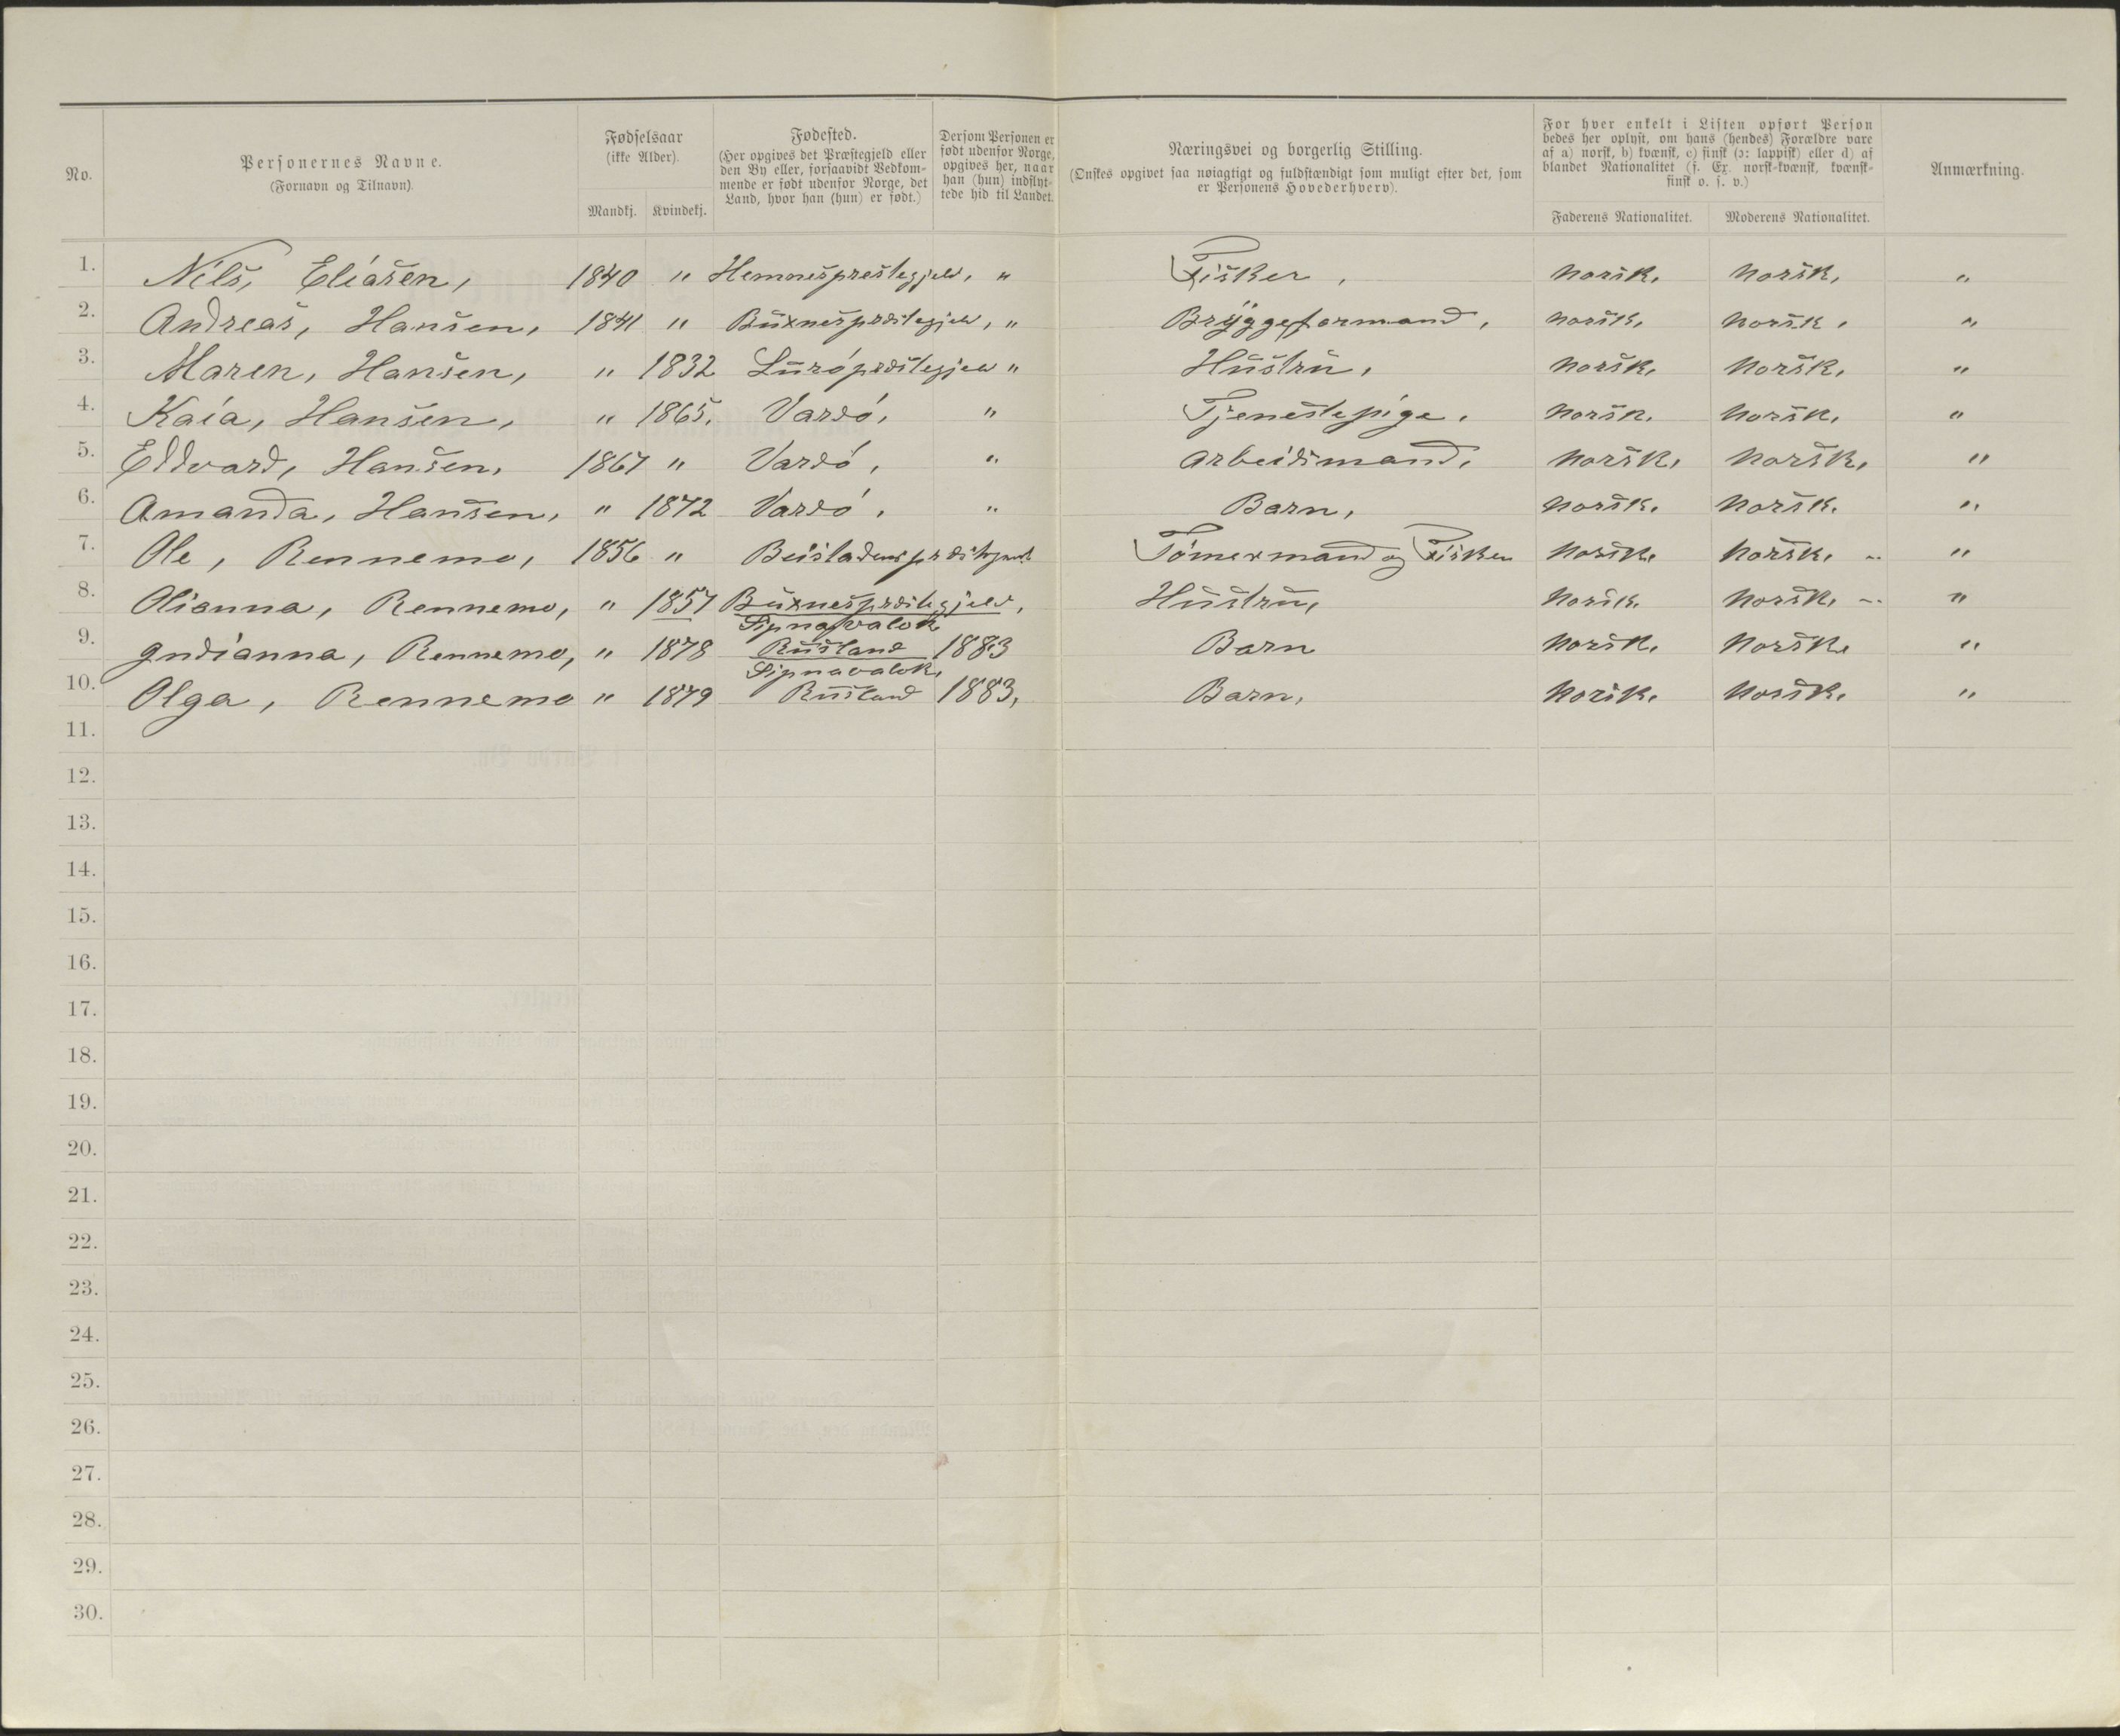 No.
Personernes Navne.
(Fornavn og Tilnavn).
Fødselsaar
(ikke Alder).
Mandkj. Kvindekj.
Fødested.
(Her opgives det Præstegjeld eller
den By eller, forsaavidt Vedkom-
mende er født udenfor Norge, det
Land, hvor han (hun) er født.)
Dersom Personen er
født udenfor Norge,
opgives her, naar
han (hun) indflyt-
tede hid til Landet.
Næringsvei og borgerlig Stilling.
(Ønskes opgivet saa nøiagtigt og fuldstændigt som muligt efter det, som
er Personens Hovederhverv).
For hver enkelt i Listen opført Person
bedes her oplyst, om hans (hendes) Forældre vare
af a) norsk, b) kvænsk, c) finsk (ɔ: lappisk) eller d) af
blandet Nationalitet (f. Ex. norsk-kvænsk, kvænsk-
finsk o. s. v.)
Faderens Nationalitet. Moderens Nationalitet.
Anmærkning.
1. Nils, Eliasen, 1840 " Hemnesprestegjeld, " Fisker, Norsk, Norsk, "
2. Andreas, Hansen, 1841 " Buxnespræstegjeld, " Bryggeformand, Norsk, Norsk, "
3. Maren, Hansen, " 1832 Lurøpræstegjeld " Hustru, Norsk, Norsk, "
4. Kaia, Hansen, " 1865, Vardø, " Tjenestepige, Norsk, Norsk, "
5. Eddvard, Hansen, 1867 " Vardø, " Arbeidsmand, Norsk, Norsk, "
6. Amanda, Hansen, " 1872 Vardø, " Barn, Norsk, Norsk, "
7. Ole, Rennemo, 1856 " Tømermand og Fisker Norsk, Norsk, "
8. Olianna, Rennemo, " 1857 Buxnespræstegjeld, Hustru, Norsk, Norsk, "
Sipnavalok
9. Gudianna, Rennemo, " 1878 Rusland 1883 Barn Norsk, Norsk, "
Sipnavalok,
10. Olga, Rennemo " 1879 Rusland 1883, Barn, Norsk, Norsk, "
11.
12.
13.
14.
15.
16.
17.
18.
19.
20.
21.
22.
23.
24.
25.
26.
27.
28.
29.
30.